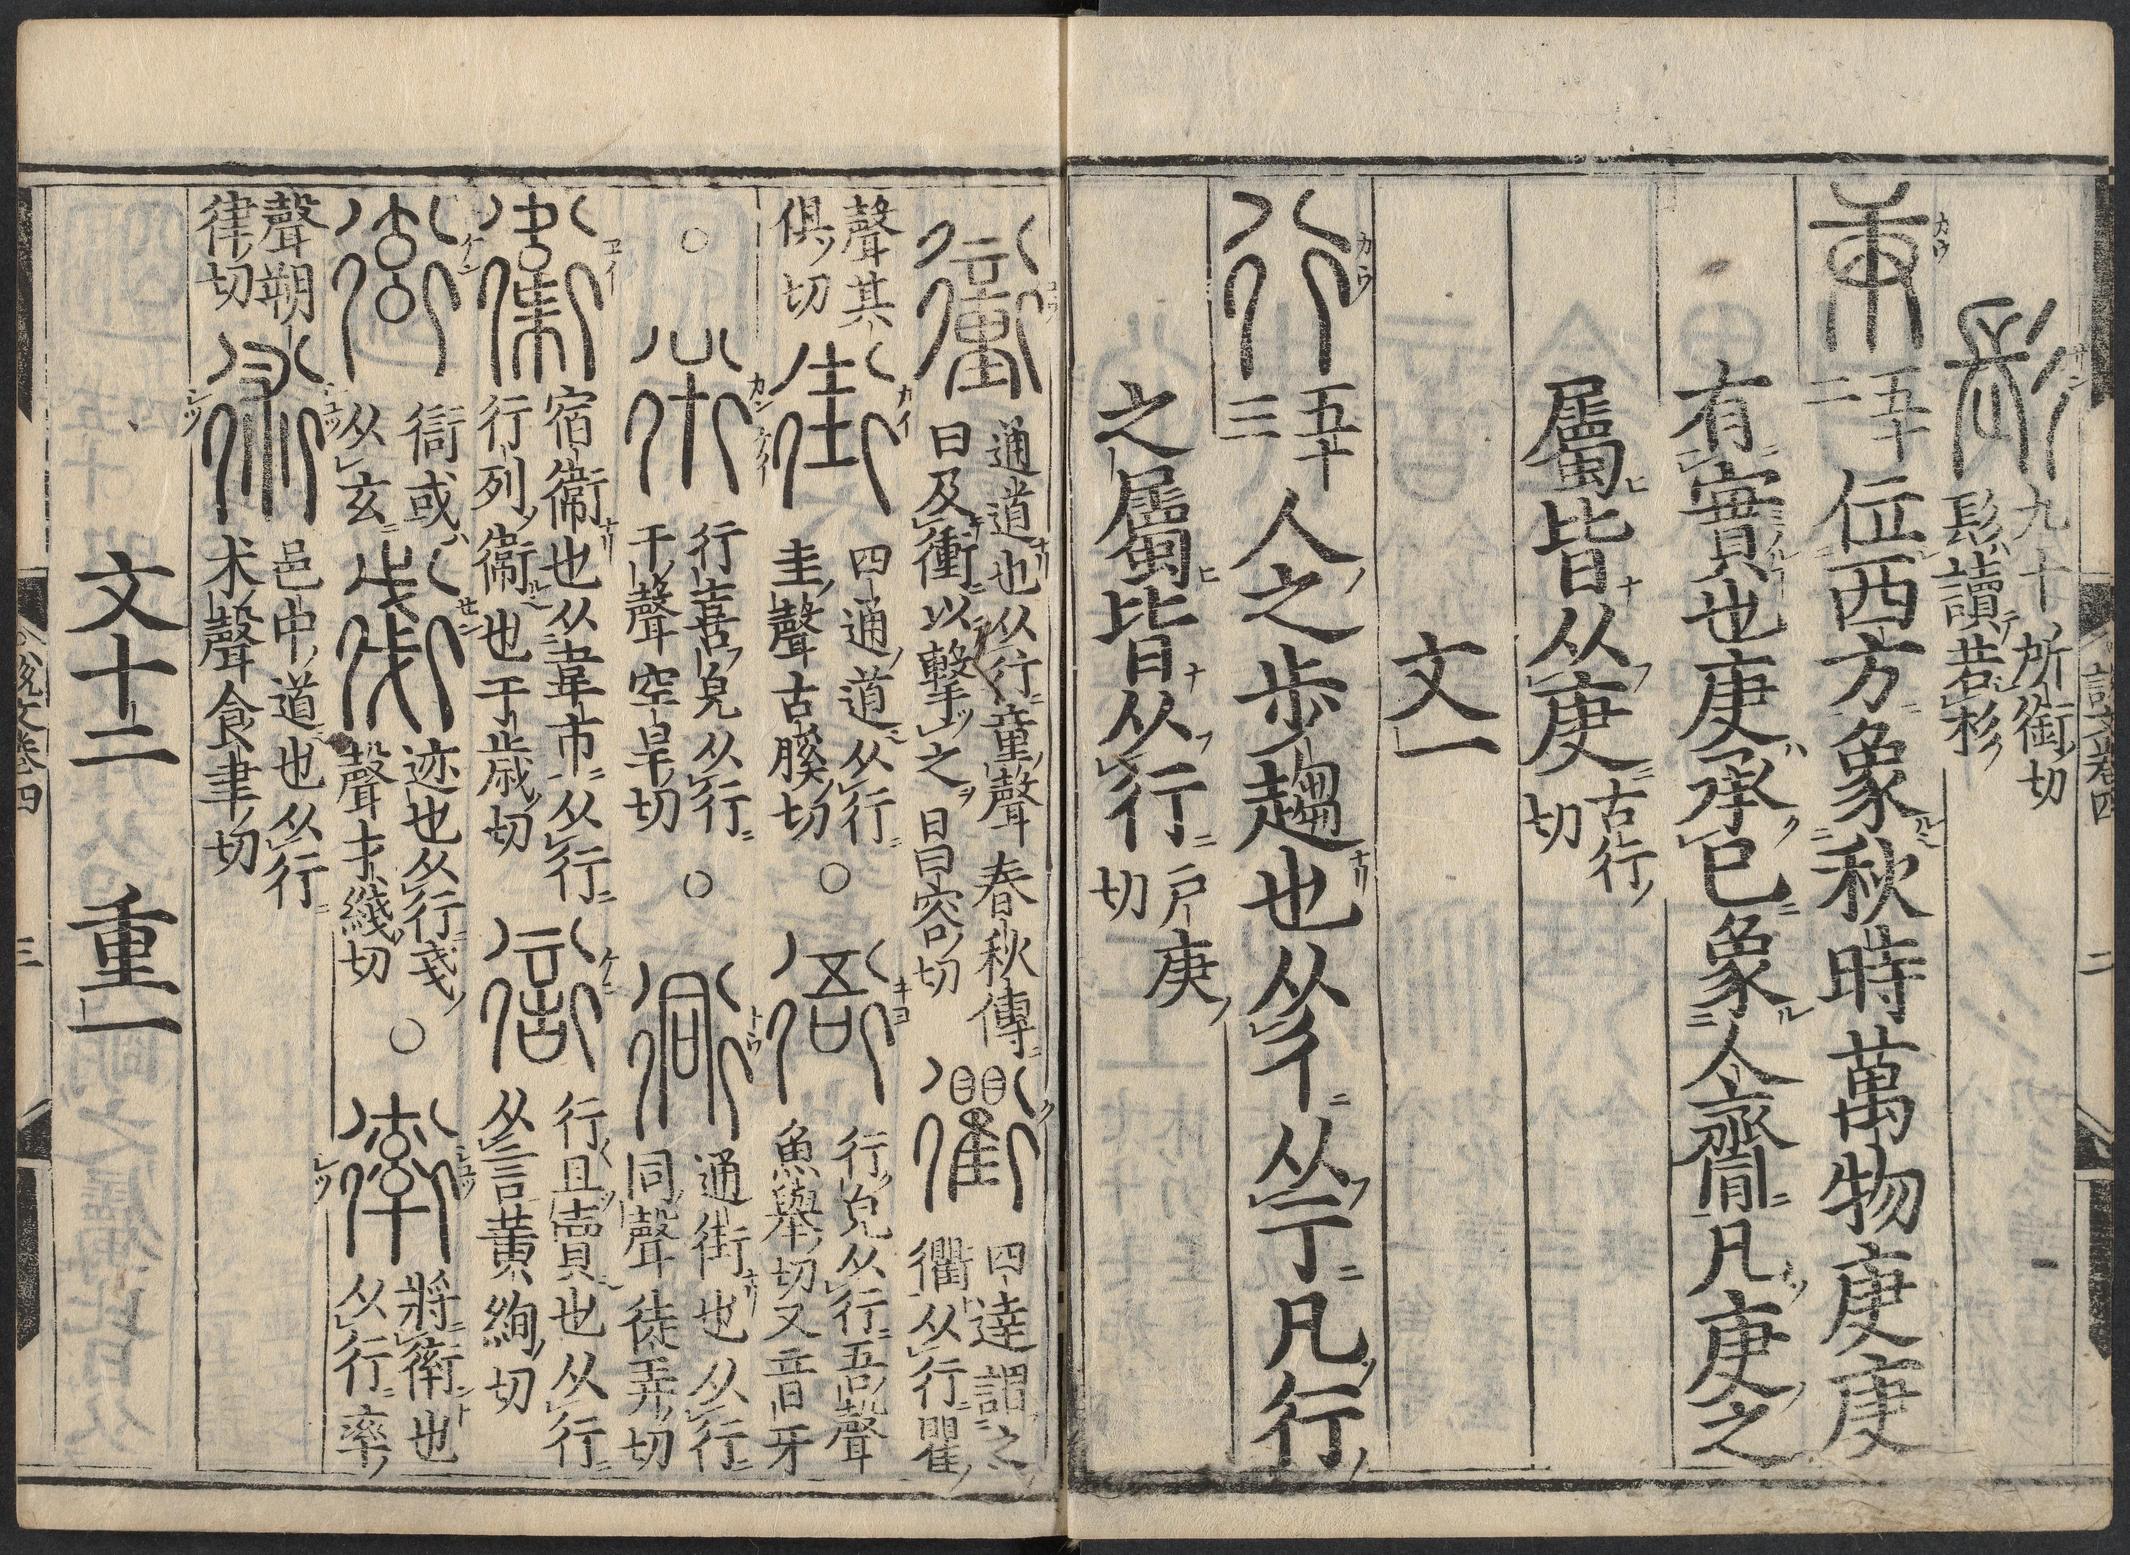 九十
髟讀若杉
所銜切
五十
二
位西方象秋時萬物庚庚
有實也庚承已象人𪗋凡庚之
屬皆从庚
古行
切
文一
行
五十
三
人之歩趨也从彳从亍凡行
之屬皆从行
戸庚
切
通道也从行童聲春秋傳
曰及衝以擊之昌容切
四達謂之
衢从行瞿
聲其
俱切
四通道从行
圭聲古膎切
○
行皃从行吾聲
魚舉切又音牙
○
行喜皃从行
干聲空旱切
○
通街也从行
同聲徒弄切
宿衞也从韋帀从行
行列衞也于歳切
行且賣也从行
从言黄絢切
衒或
从玄
迹也从行戔
聲才綫切
○
將衛也
从行率
聲朔
律切
邑中道也从行
朮聲食聿切
文十二 重一
說文卷四
二
說文卷四
三